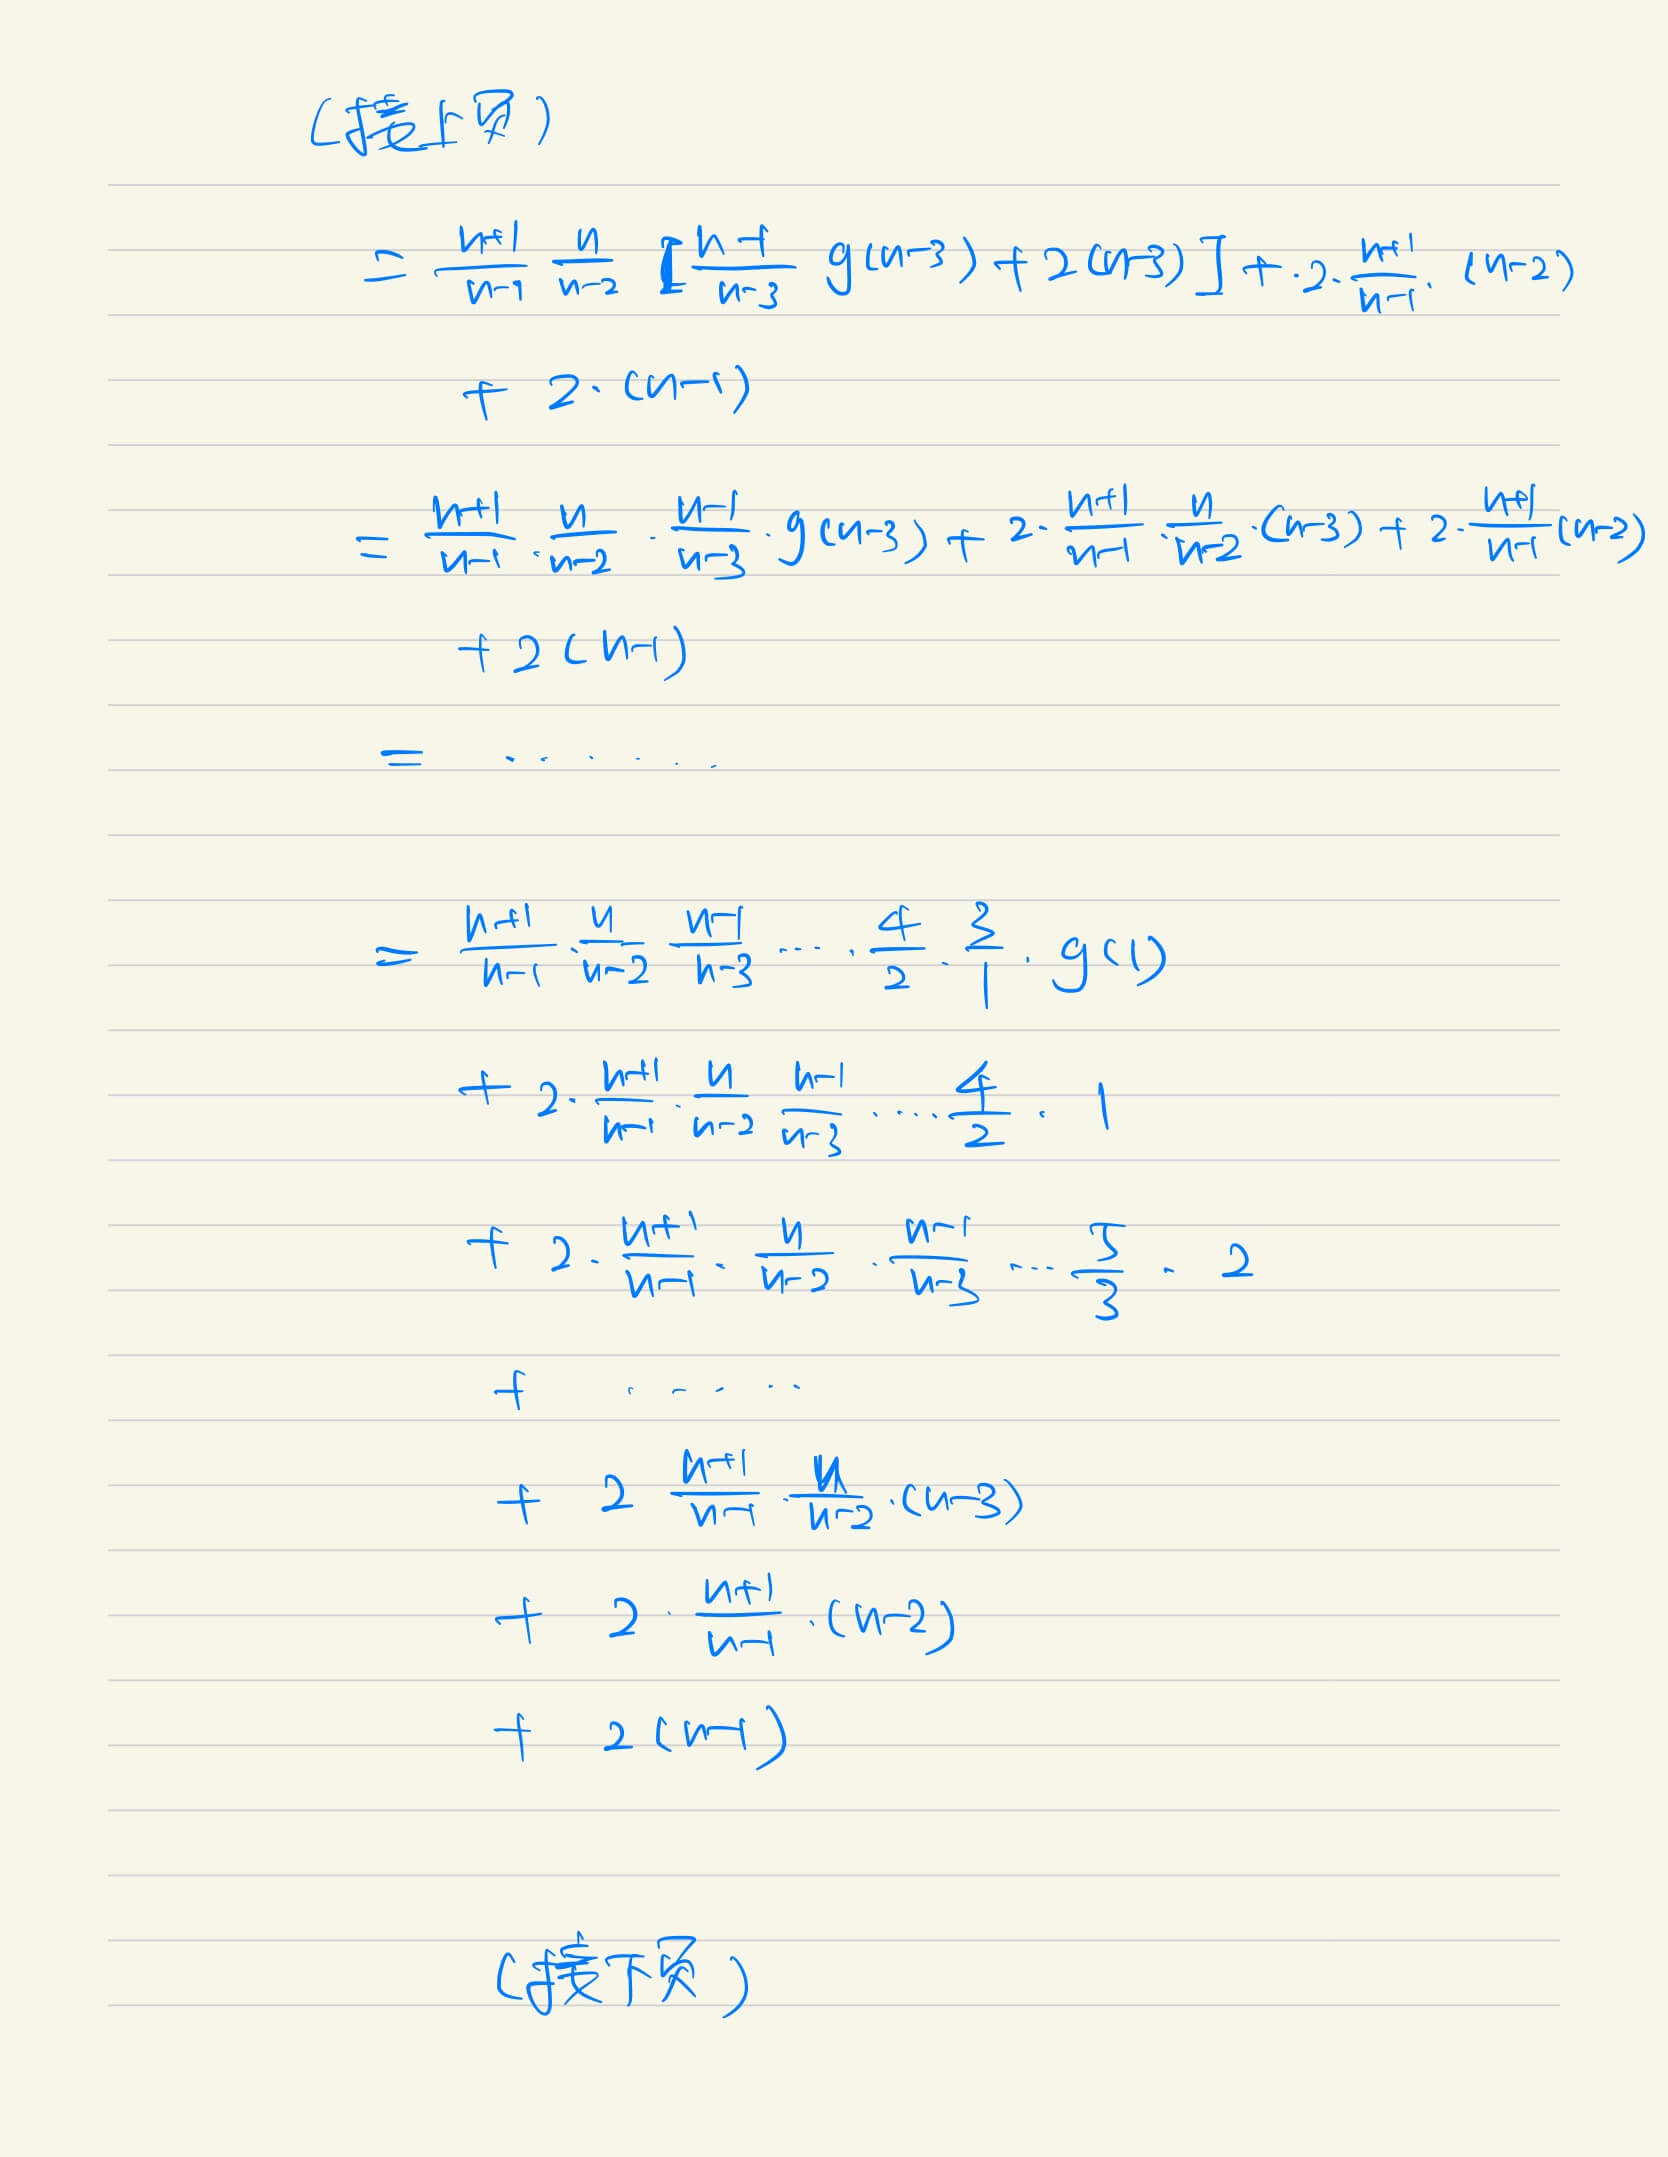 (接上页)
= \frac{n+1}{n-1} \frac{n}{n-2} [\frac{n-1}{n-3} g(n-3) + 2(n-3)] + \cdot 2 \cdot \frac{n+1}{n-1} \cdot (n-2)
+ 2 \cdot (n-1)
= \frac{n+1}{n-1} \cdot \frac{n}{n-2} \cdot \frac{n-1}{n-3} \cdot g(n-3) + 2 \cdot \frac{n+1}{n-1} \cdot \frac{n}{n-2} \cdot (n-3) + 2 \cdot \frac{n+1}{n-1} (n-2)
+ 2(n-1)
= ······
= \frac{n+1}{n-1} \cdot \frac{n}{n-2} \frac{n-1}{n-3} ···· \cdot \frac{4}{2} \cdot \frac{3}{1} \cdot g(1)
+ 2 \cdot \frac{n+1}{n-1} \cdot \frac{n}{n-2} \frac{n-1}{n-3} ···· \frac{4}{2} \cdot 1
+ 2 \cdot \frac{n+1}{n-1} \cdot \frac{n}{n-2} \cdot \frac{n-1}{n-3} ··· \frac{5}{3} \cdot 2
+ ·····
+ 2 \frac{n+1}{n-1} \cdot \frac{n}{n-2} \cdot (n-3)
+ 2 \cdot \frac{n+1}{n-1} \cdot (n-2)
+ 2(n-1)
(接下页)